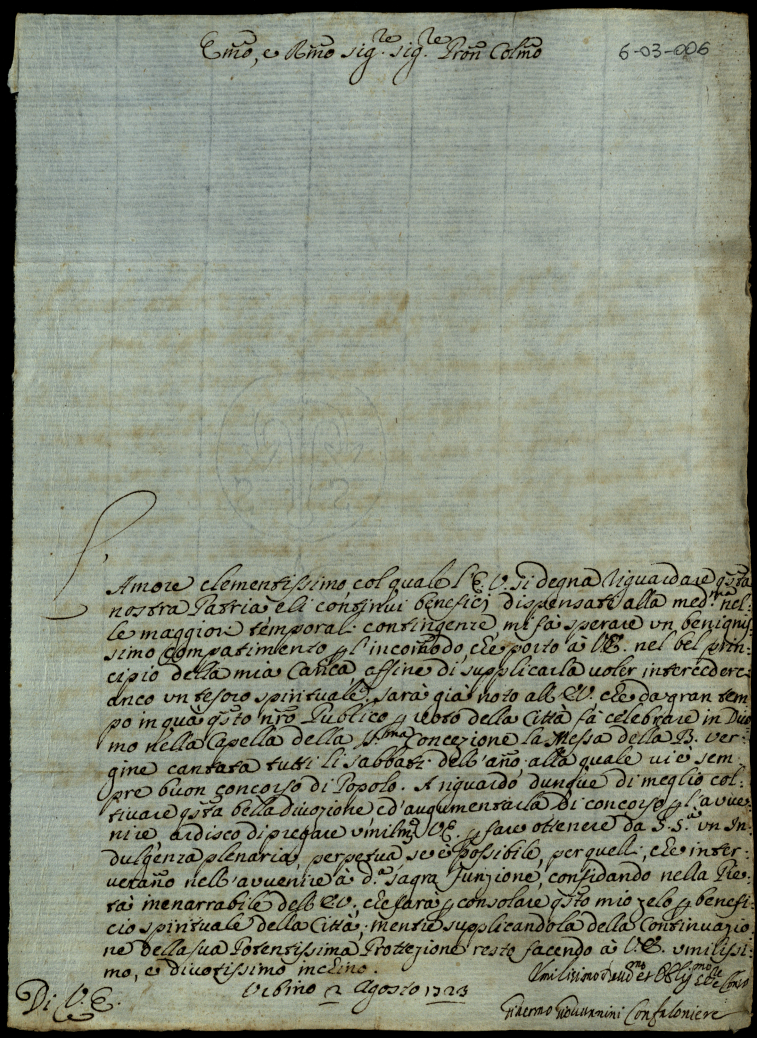 Emo, e Rmo Sig.re Sig.re Pron Colmo
6-03-006
L'Amore clementissimo col quale l'E.V. si degna riguardare qsta
nostra Patria e li continui beneficj dispensati alla med.ma nel-
le maggiori temporali contingenze mi fà sperare un benignis-
simo compatimento p l'incommodo, che porto à V.E. nel bel prin-
cipio della mia Carica affine di supplicarla voler intercedere
anco un tesoro spirituale. Sarà già noto all'E.V. che da gran tem
po in quà qsto nro Publico p voto della Città fà celebrare in Duo
mo nella Capella della SSma Concezione la Messa della B. Ver-
gine cantata tutti li Sabbati dell'año alla quale vi è sem
pre buon concorso di Popolo. A riguardo dunque di meglio col-
tivare qsta bella divozione ed'augumentarla di concorso p l'avve-
nire ardisco di pregare umilm.e V.E. p fare ottenere da S.S.tà un In-
dulgenza plenaria, perpetua se è possibile, per quelli, che inter-
verañо nell'avvenire à d.a sagra Funzione, confidando nella Pie-
tà inenarrabile dell'E.V. che farà p consolare qsto mio zelo p benefi-
cio spirituale della Città; mentre supplicandola della Continuazio
ne della sua Potentissima Protezzione resto facendo à V.E. umilissi-
mo, e divotissimo inchino.
Di V.E.
Urbino 2 Agosto 1723
Umilissimo Devmo et Obligmo
Confaloniere